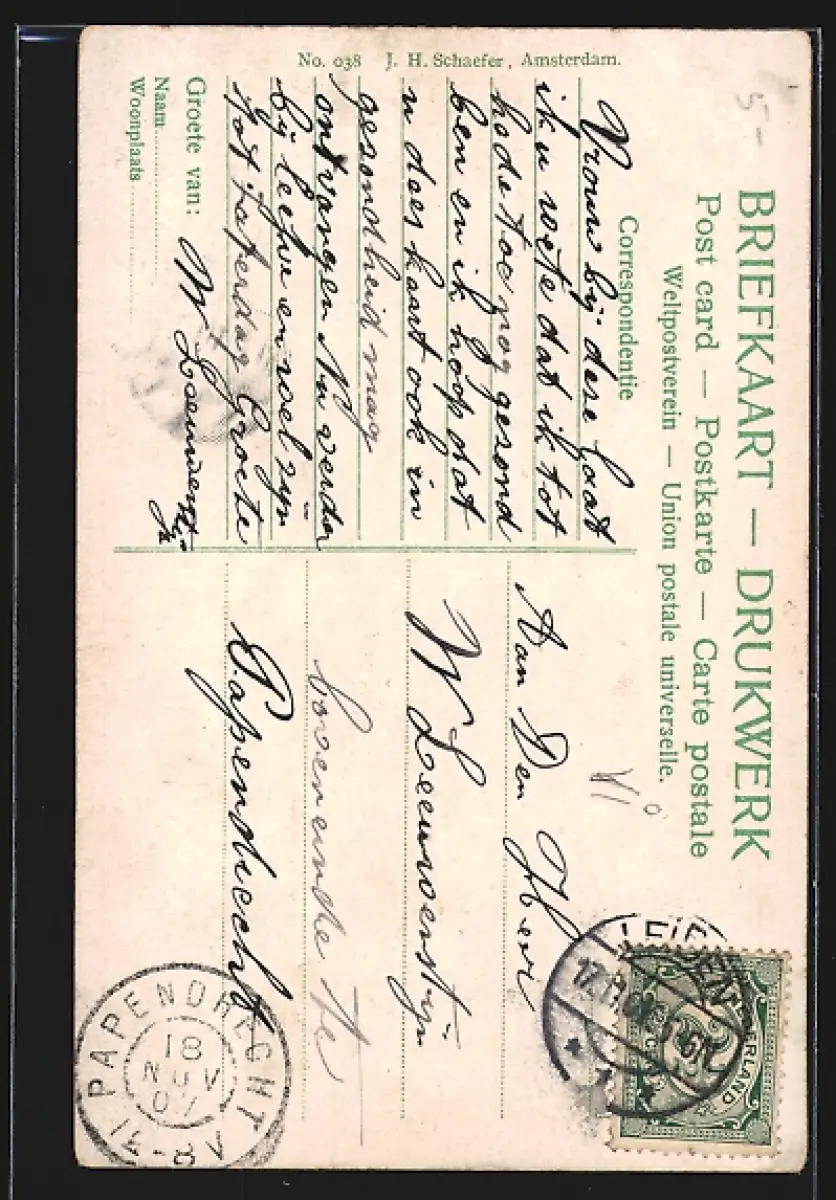 5-
BRIEFKAART — DRUKWERK
Post card — Postkarte — Carte postale
Weltpostverein — Union postale universelle.
No. 038 J. H. Schaefer, Amsterdam.
Correspondentie
Vrouw bij dese Laat
ik u wete dat ik tot
hede toe nog gesond
ben en ik hoop dat
u dees kaart ook in
gesondheid mag
ontvangen Nu verder
bij leefve en wel zijn
tot saterdag Groete
Groete van:
W Leeuwenstijn
Jz
Naam
Woonplaats
Aan Den Heer
W Leeuwenstijn
boveneinde te
Papendrecht
LEIDEN
NEDERLAND
PAPENDRECHT
18
NOV
07